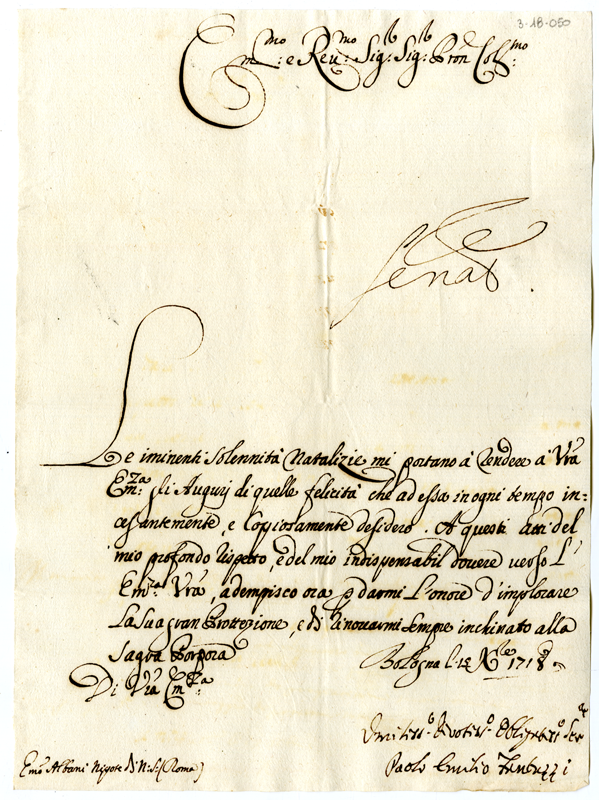 3-18-050
Em.mo e Reu.mo Sig.r Sig.r Pron Col.mo
Le iminenti Solennità Natalizie mi portano à rendere a Vrã
Em.za gli Augurij di quelle felicità che ad essa in ogni tempo in=
cessantemente, e Copiosamente desidero. A questi atti del
mio profondo rispetto, e del mio indispensabil dovere verso L'
Em.za Vrã, adempisco ora p darmi L'onore d'implorare
La Sua gran Protezione, e di rinovarmi sempre inchinato alla
Sagra Porpora
Bologna 1718
Di Vrã Em.za
Umiliss.o Divotiss.o Obligatiss.o Ser.e
Paolo Emilio Fantuzzi
Em.o Albani Nipote di N. S. (Roma)